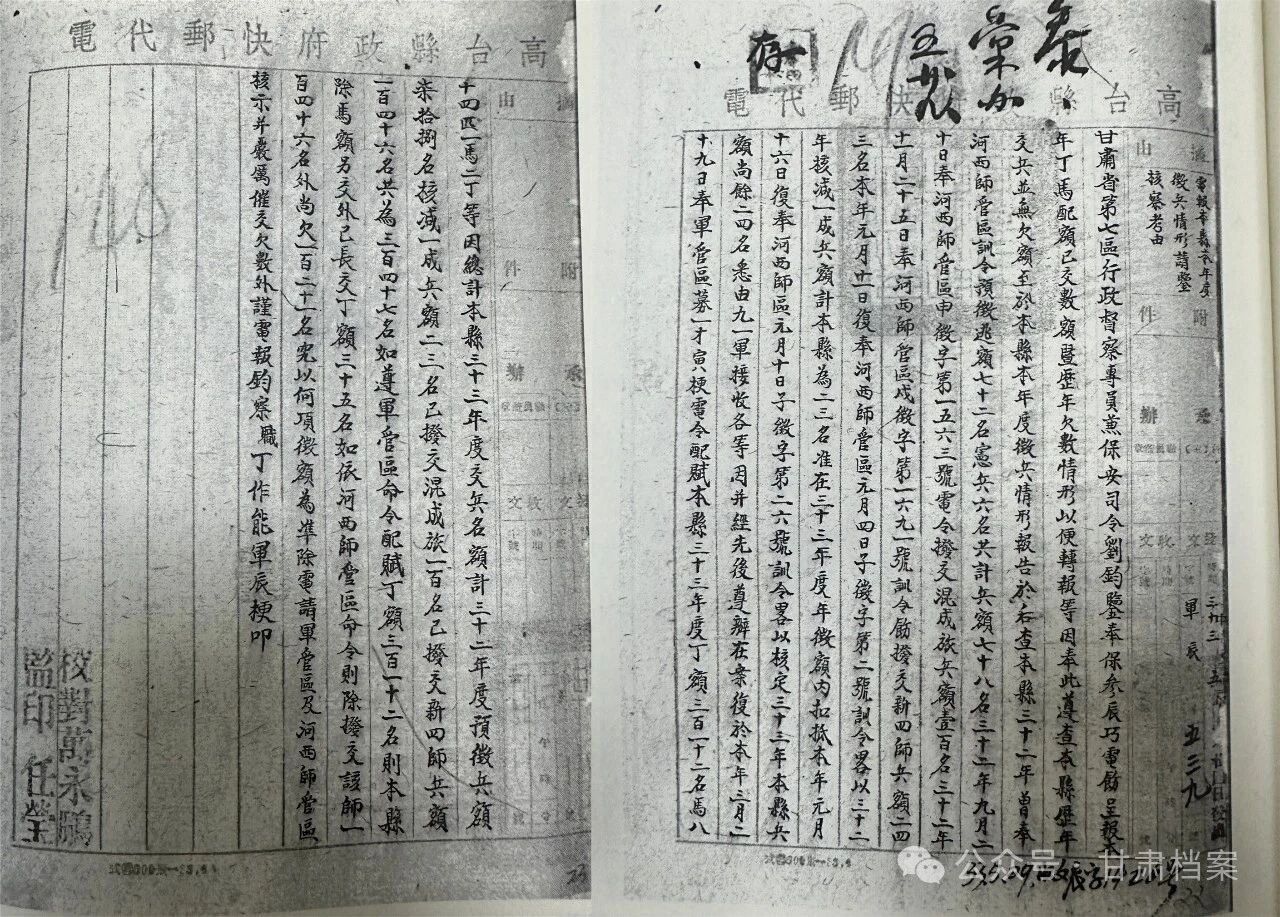 泰
棠如
五廿八
存
高台縣政府快郵代電
電報本縣本年度
徵兵情形請鑒
核察考由
事由
附件
承辦
收文
發文
軍辰
五三九
甘肅省第七區行政督察專員兼保安司令劉鈞鑒奉保參辰巧電飭呈報本
年丁馬配額已交數額暨歷年欠數情形以便轉報等因奉此遵查本縣歷年
交兵並無欠額至於本縣本年度徵兵情形報告於后查本縣三十二年曾奉
河西師管區訓令預徵逃額七十二名憲兵六名共計兵額七十八名三十二年九月二
十日奉河西師管區申徵字第一五六三號電令撥交混成旅兵額壹百名三十二年
十一月二十五日奉河西師管區戌徵字第一六九一號訓令飭撥交新四師兵額二四
三名本年元月廿一日復奉河西師管區元月四日子徵字第二號訓令畧以三十二
年核減一成兵額計本縣為二三名准在三十三年度年徵額內扣抵本年元月
十六日復奉河西師區元月十日子徵字第二六號訓令畧以核定三十三年本縣兵
額尚餘二四名悉由九一軍接收各等因并經先後遵辦在案復於本年三月二
十九日奉軍管區募一才寅梗電令配賦本縣三十三年度丁額三百一十二名馬八
公众号 · 甘肃档案
高台縣政府快郵代電
事由
附件
承辦
收文
十四匹一馬二丁等因總計本縣三十三年度交兵名額計三十二年度預徵兵額
柒拾捌名核減一成兵額二三名已撥交混成旅一百名已撥交新四師兵額
一百四十六名共為三百四十七名如遵軍管區命令配賦丁額三百一十二名則本縣
除馬額另交外已長交丁額三十五名如依河西師管區命令則除撥交該師一
百四十六名外尚欠一百二十一名究以何項徵額為準除電請軍管區及河西師管區
核示并嚴厲催交欠數外謹電報鈞察職丁作能軍辰梗叩
校對萬永鵬
監印任瑩